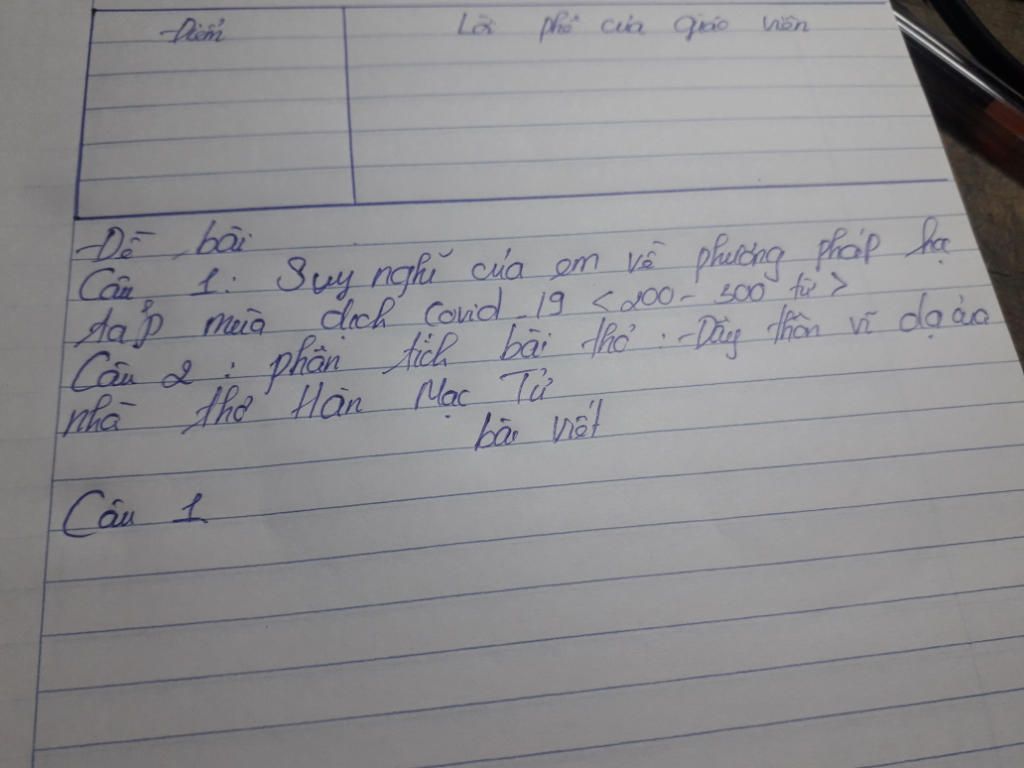 Điểm
Lời phê của giáo viên
Đề bài
Câu 1: Suy nghĩ của em về phương pháp hạ
tập mùa dịch Covid_19 <200-300 từ>
Câu 2: phân tích bài thơ: Đây thôn vĩ dạ của
nhà thơ Hàn Mạc Tử
bài viết
Câu 1